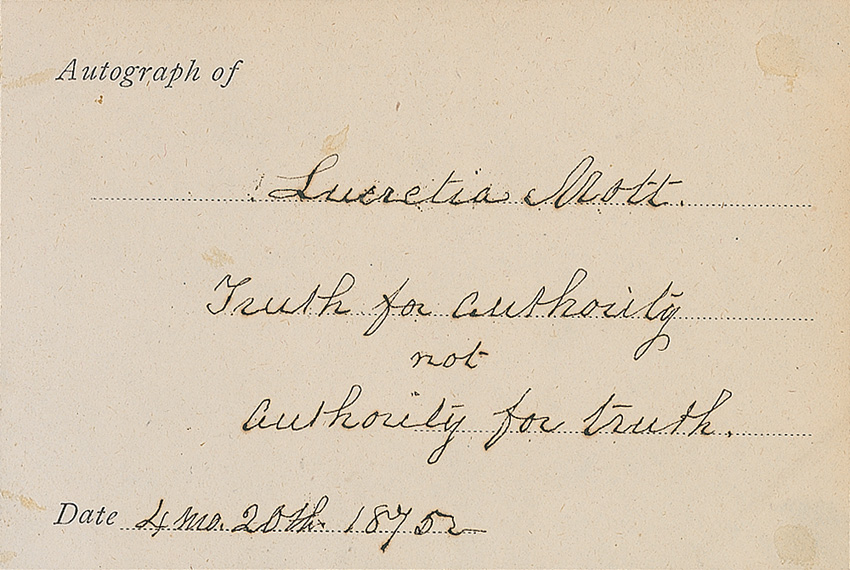 Autograph of
Lucretia Mott.
Truth for authority
not
authority for truth.
Date 4 mo. 20th. 1875